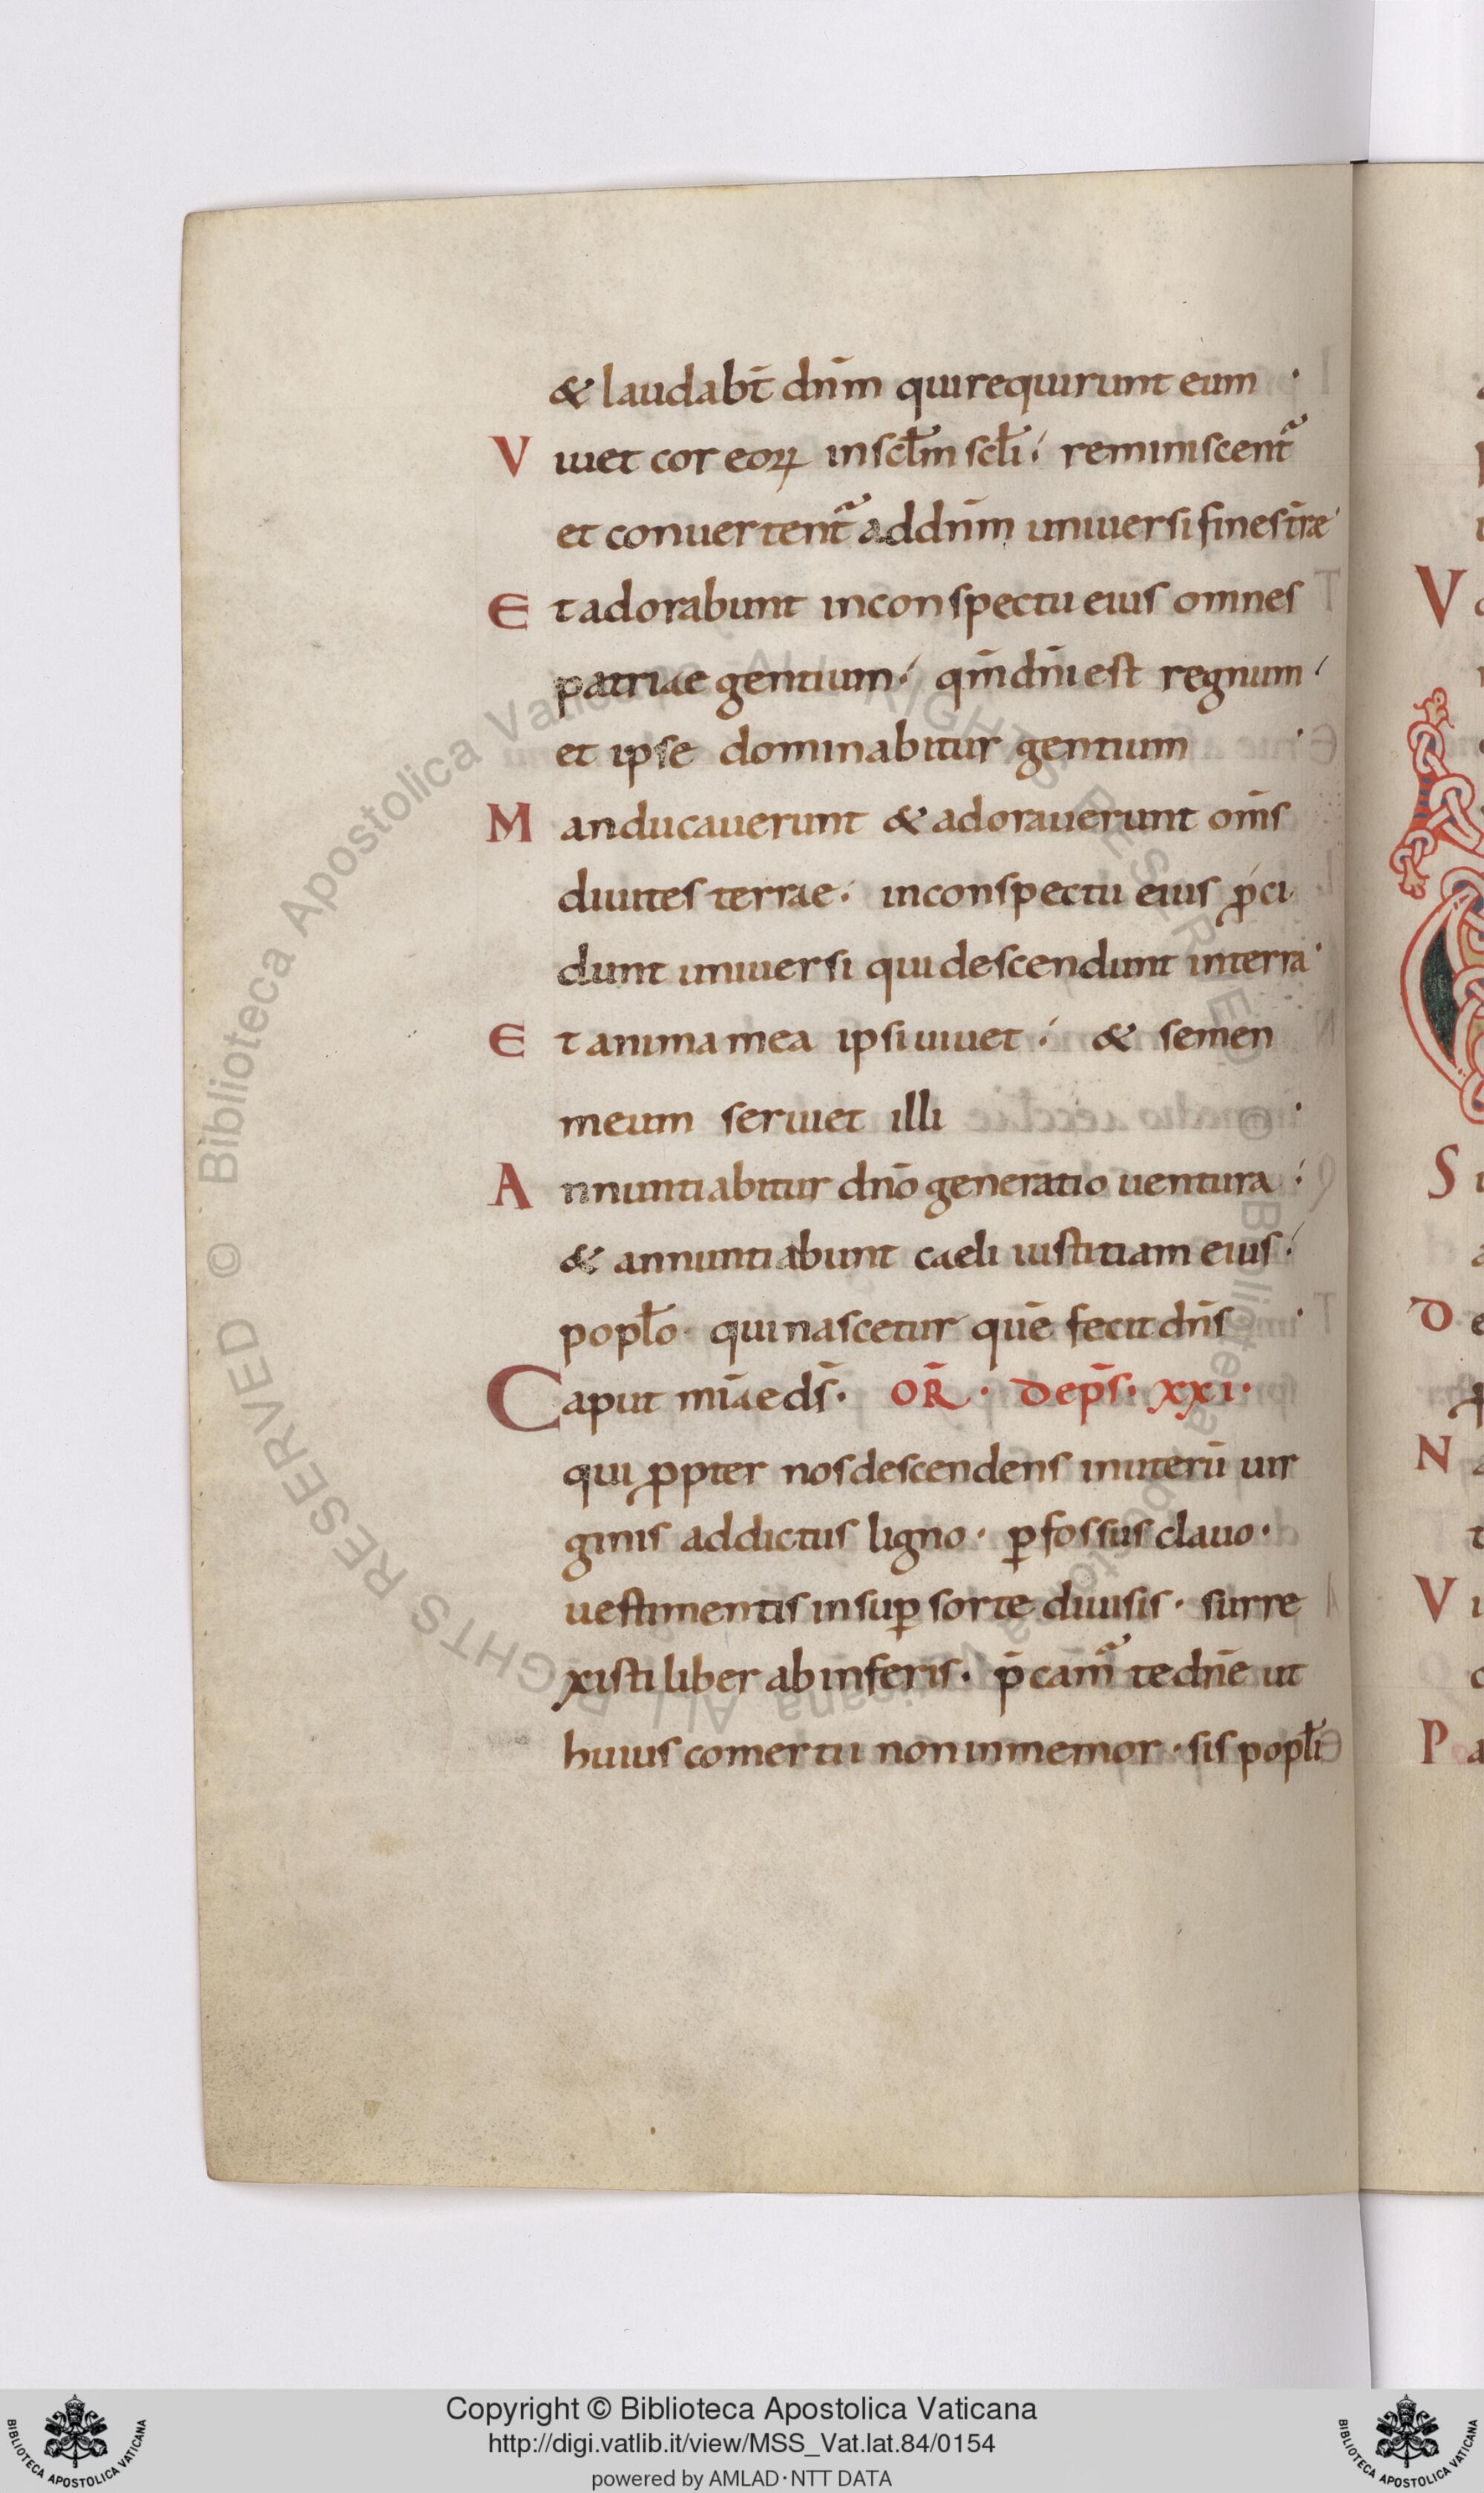 & laudabt̄ dn̄m qui requirunt eum ·
V iuet cor eoꝝ in scl̄m scl̄i · reminiscent᷑
et conuertent᷑ ad dn̄m uniuersi fines tr̄ae ·
E t adorabunt in conspectu eius omnes
patriae gentium · qm̄ dn̄i est regnum ·
et ipse dominabitur gentium ·
M anducauerunt & adorauerunt om̄s
diuites terrae · in conspectu eius ꝓci
dunt uniuersi qui descendunt in terra ·
E t anima mea ipsi uiuet · & semen
meum seruiet illi ·
A nnuntiabitur dn̄o generatio uentura ·
& annuntiabunt caeli iustitiam eius ·
popl̄o · qui nascetur quē fecit dn̄s ·
Caput mīae ds̄ · OR̄ · De ps̄ · XXI ·
qui ꝓpter nos descendens in uterū uir
ginis addictus ligno · ꝑfossus clauo ·
uestimentis insuꝑ sorte diuisis · surre
xisti liber ab inferis · p̄camᷣ te dn̄e ut
huius comertii non inmemor · sis popl̄i
V
S
D e
N
V i
P a
ALL RIGHTS RESERVED © Biblioteca Apostolica Vaticana
Copyright © Biblioteca Apostolica Vaticana
http://digi.vatlib.it/view/MSS_Vat.lat.84/0154
powered by AMLAD·NTT DATA
BIBLIOTECA APOSTOLICA VATICANA
BIBLIOTECA APOSTOLICA VATICANA